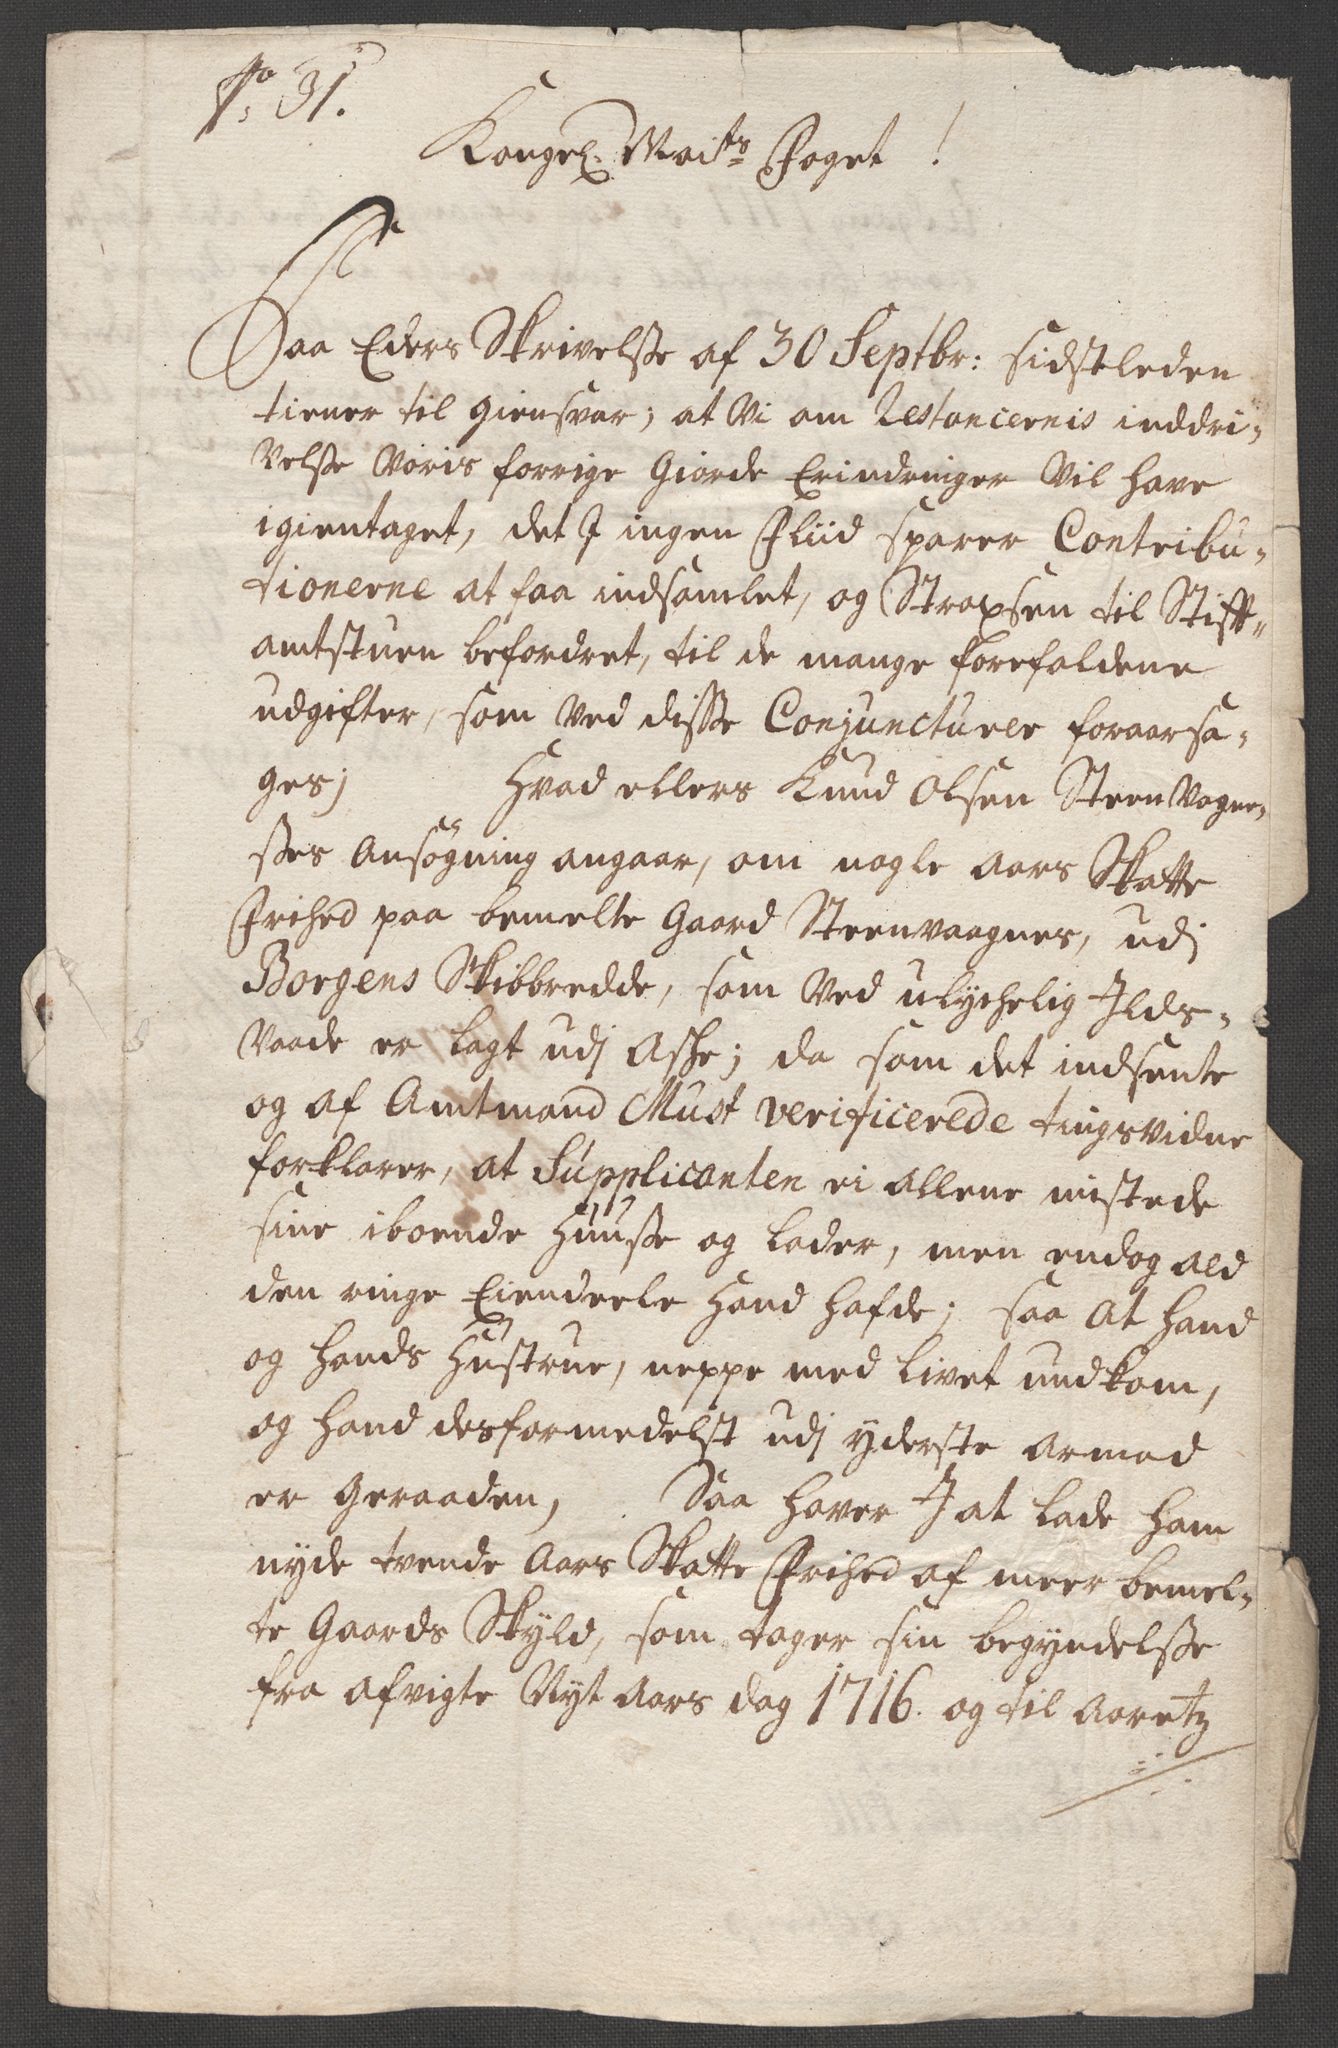 No 31.
Kongel. Maits Foget!
Paa Eders Skrivelsse af 30 Septbr: sidstleden
tiener til Giensvar; at Vi om Restancernis inddri-
Velsse Voris forrige Giorde Erindringer Vil have
igientaget, det I ingen Fliid sparer Contribu-
tionerne at faa indsamlet, og Straxsen til Stiff-
amtstuen befordret, til de mange forefaldene
udgifter, som Ved disse Conjuncturer foraarsa-
ges; Hvad ellers Knud Olsen SteenVagne-
sses Ansøgning angaar, om nogle Aars Skatte
Frihed paa bemelte Gaard Steenvaagnes, udj
Borgens Skibbredde, som Ved ulychelig Ilds-
Vaade er lagt udj Aske; da som det indsente
og af Amtmand Must verificerede tingsvidne
forklarer, at Supplicanten ei allene mistede
sine iboende Huusse og Lader, men endog ald
den ringe Eiendeele Hand hafde; saa at hand
og hands Hustrue, neppe med Livet undkom,
og hand desformedelst udj yderste Armod
er Geraaden, Saa haver I at lade ham
nyde tvende Aars Skatte Frihed af meer bemel-
te Gaards Skyld, som tager sin begyndelsse
fra afvigte Nyt Aars dag 1716. og til Aaretz